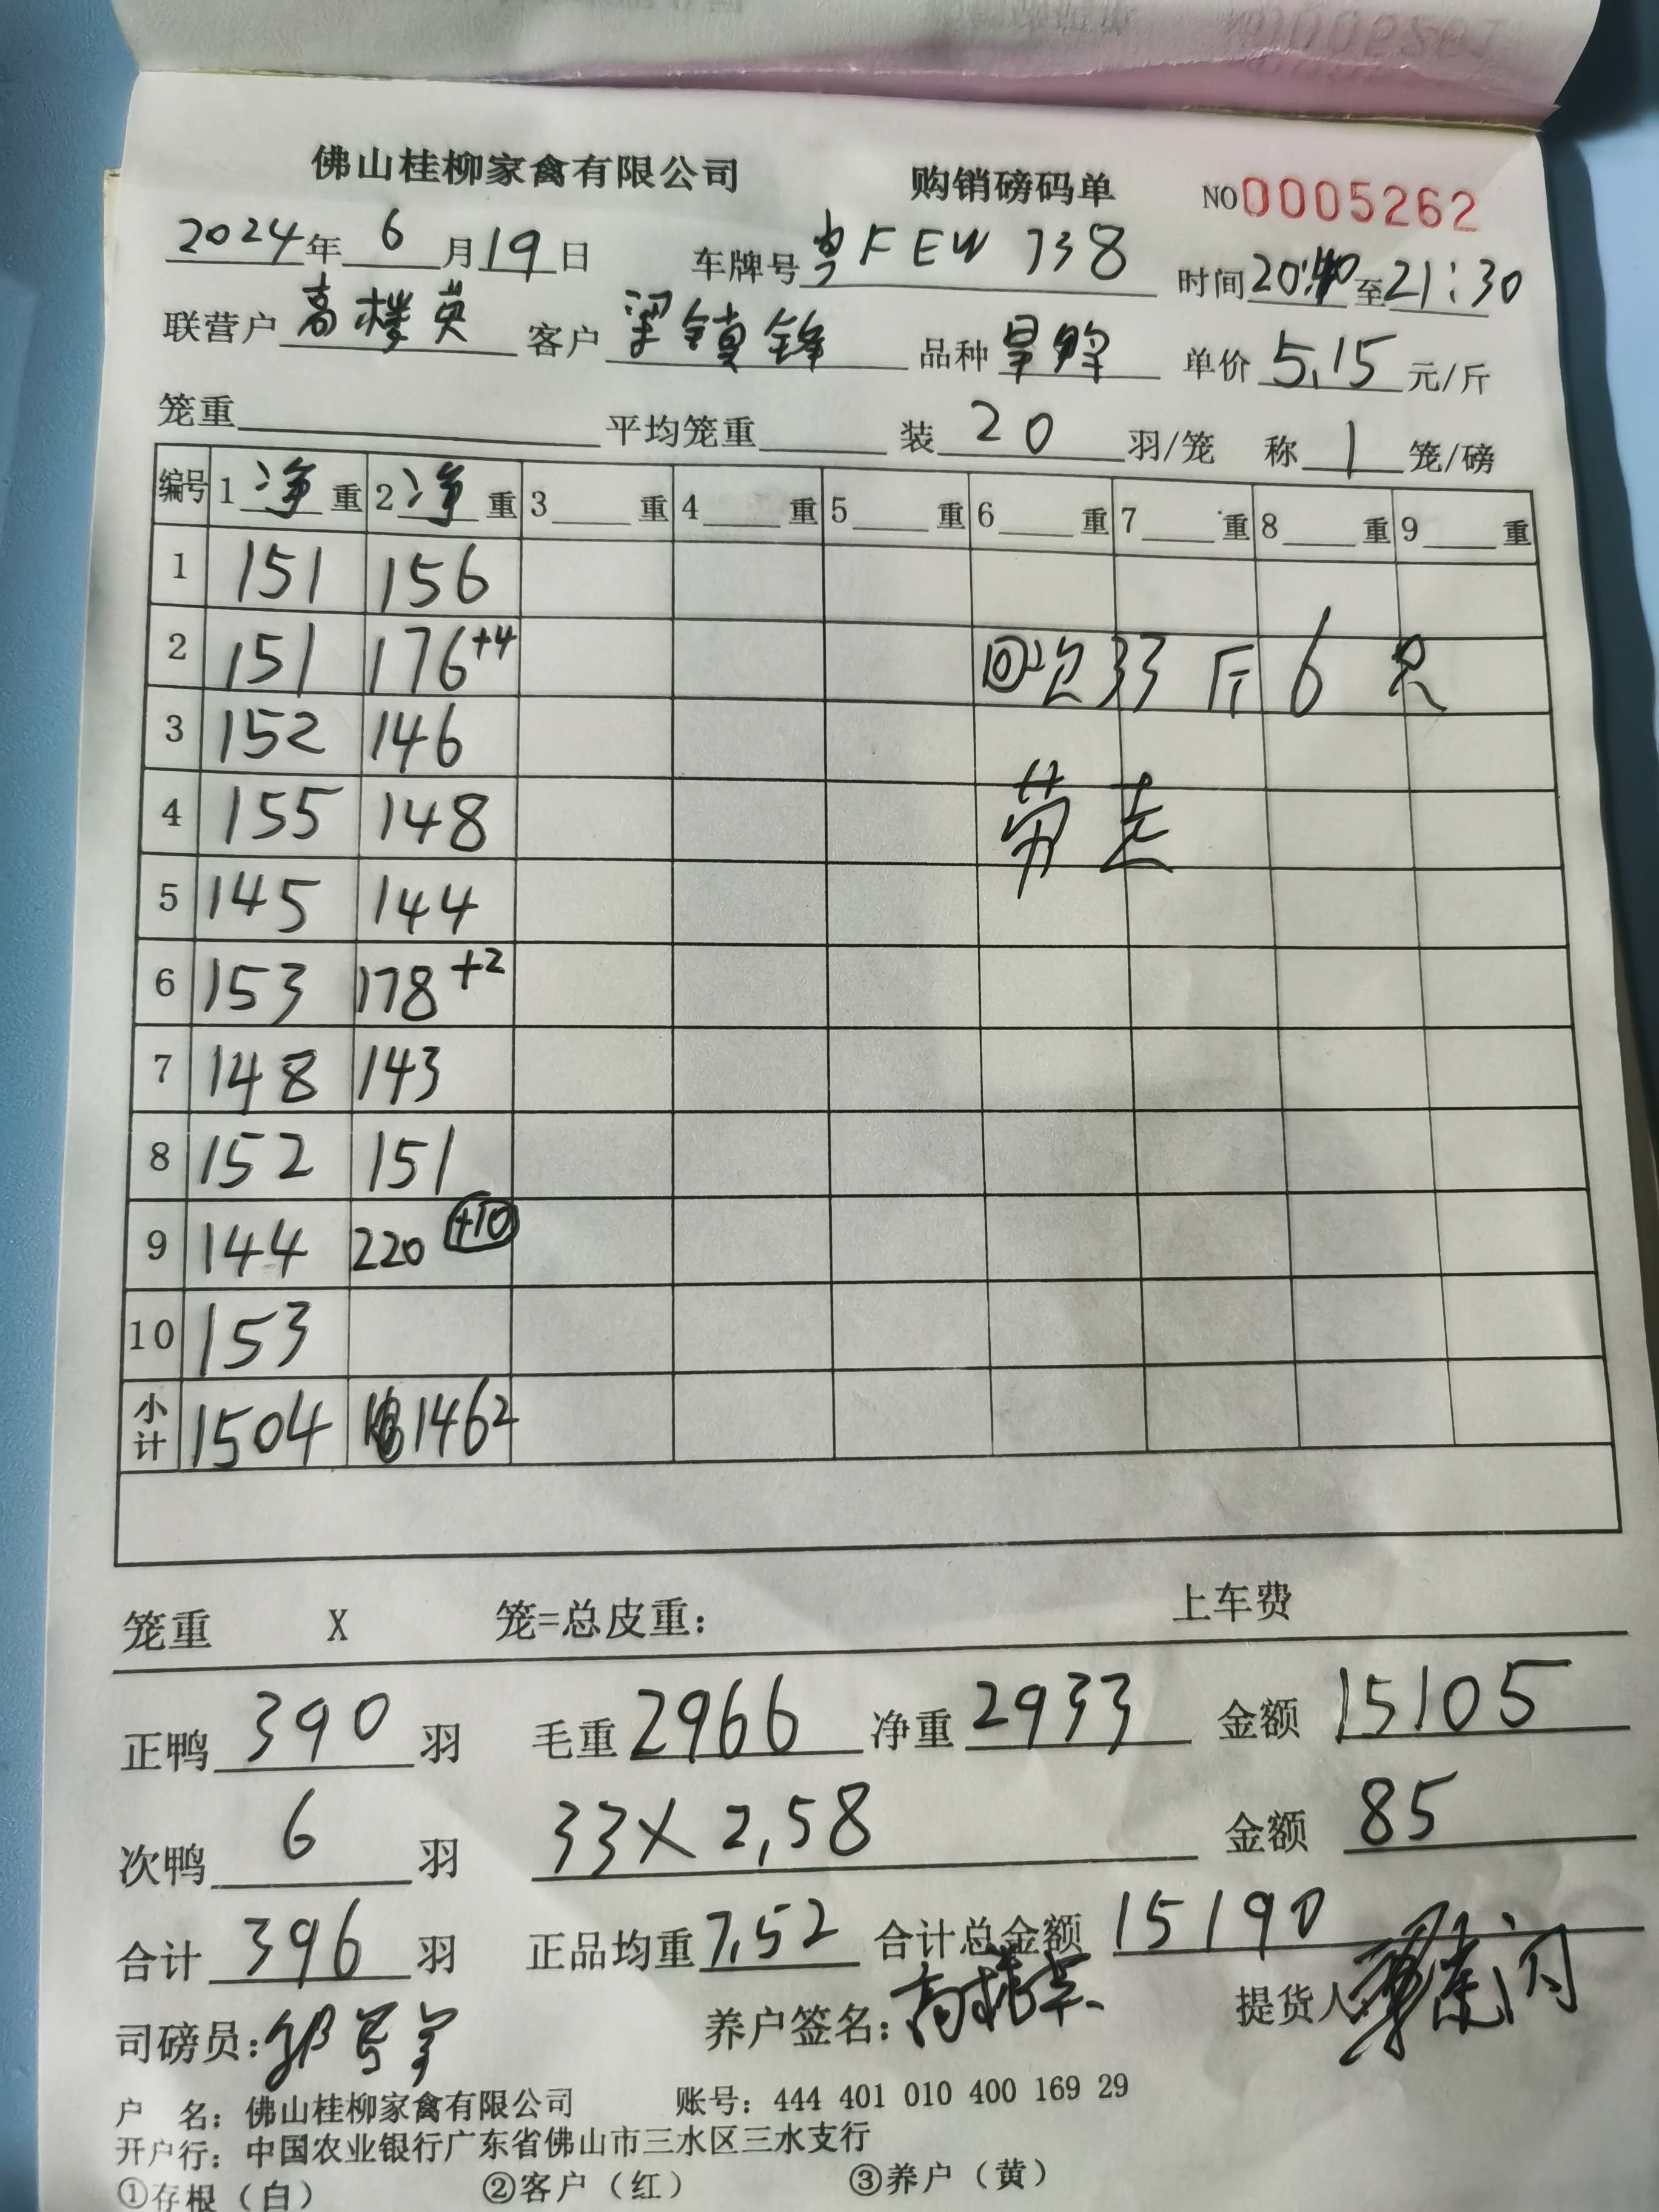 佛山桂柳家禽有限公司 购销磅码单 NO 0005262
2024年 6 月 19 日 车牌号 粤FEW 738 时间 20:40 至 21:30
联营户 高楼英 客户 梁镇锋 品种 单价 5.15 元/斤
笼重 平均笼重 装 20 羽/笼 称 1 笼/磅
编号 1 净 重 2 净 重 3 重 4 重 5 重 6 重 7 重 8 重 9 重
1 151 156
2 151 176+4 回次33斤6只
3 152 146
4 155 148
5 145 144
6 153 178+2
7 148 143
8 152 151
9 144 220 +10
10 153
小计 1504 1462
笼重 X 笼=总皮重: 上车费
正鸭 390 羽 毛重 2966 净重 2933 金额 15105
次鸭 6 羽 33×2.58 金额 85
合计 396 羽 正品均重 7.52 合计总金额 15190
司磅员: 养户签名: 提货人
户 名: 佛山桂柳家禽有限公司 账号: 444 401 010 400 169 29
开户行: 中国农业银行广东省佛山市三水区三水支行
①存根(白) ②客户(红) ③养户(黄)